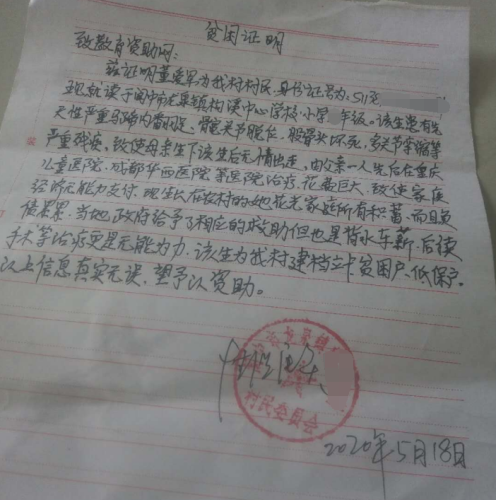 贫困证明
致教育资助网：
兹证明董爱军为我村村民，身份证号为：511
现就读于阆中市龙泉镇构溪中心学校小学 年级。该生患有先
天性严重马蹄内翻足、髋关节脱位、股骨头坏死、多关节挛缩等
严重残疾，致使母亲生下该生后无情出走，由父亲一人先后在重庆
儿童医院、成都华西医院等医院治疗，花费巨大，致使家庭
经济无能力支付。现生长在农村的她花光家庭所有积蓄，而且负
债累累，当地政府给予了相应的救助但也是背水车薪，后续
手术等治疗更是无能为力，该生为我村建档立卡贫困户、低保户。
以上信息真实无误，望予以资助。
龙泉镇
村民委员会
2020年5月18日